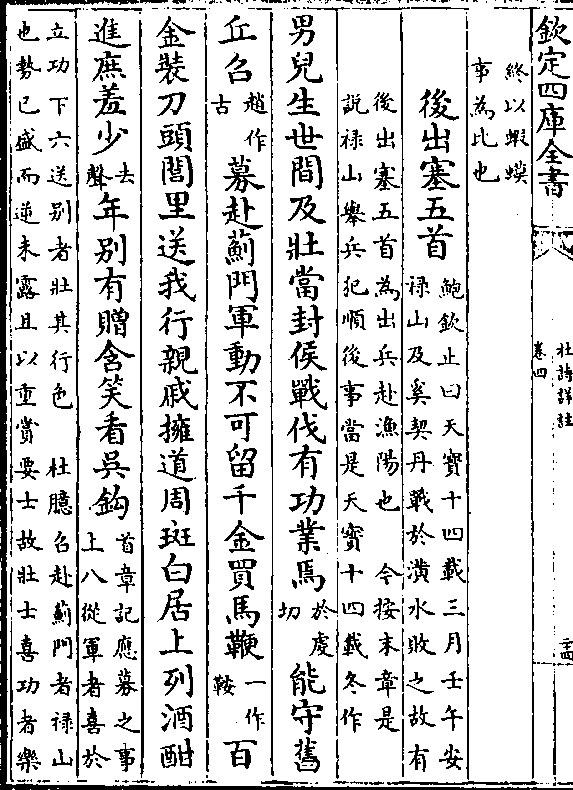 欽定四庫全書
杜詩詳註
卷四
終以蝦蟆
事為比也
後出塞五首
鮑欽止曰天寶十四載三月壬午安
禄山及奚契丹戰於潢水敗之故有
後出塞五首為出兵赴漁陽也 今按末章是
說禄山舉兵犯順後事當是天寶十四載冬作
男兒生世間及壯當封侯戰伐有功業焉於虔切能守舊
丘召趙作古募赴薊門軍動不可留千金買馬鞭一作鞍百
金裝刀頭閭里送我行親戚擁道周斑白居上列酒酣
進庶羞少去聲年別有贈含笑看吳鈎首章記應募之事上八從軍者喜於
立功下六送别者壯其行色 杜臆召赴薊門者禄山
也勢已盛而逆未露且以重賞要士故壯士喜功者樂